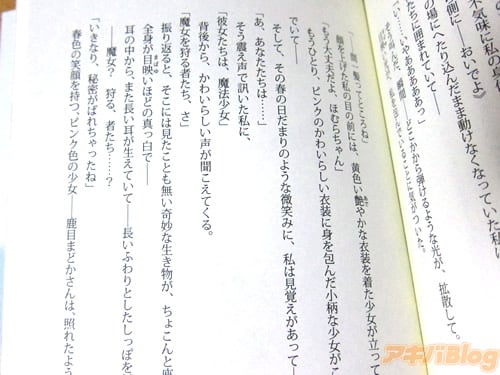 不気味に私の
側に――おいでよ》
の場にへたり込んだまま動けなくなっていた私
に囲まれていて――
いや、やああああああっ
瞬間――どこからか弾けるような光が、拡散して。
していることに気がついた。
――間一髪ってところね」
顔を上げた私の目の前には、黄色い艶やかな衣装を着た少女が立って
「もう大丈夫だよ、ほむらちゃん」
もうひとり、ピンクのかわいらしい衣装に身を包んだ小柄な少女が
でいて――
そして、その春の日だまりのような微笑みに、私は見覚えがあって――
「あ、あなたたちは……」
そう震え声で訊いた私に、
「彼女たちは、魔法少女」
背後から、かわいらしい声が聞こえてくる。
「魔女を狩る者たち、さ」
振り返ると、そこには見たことも無い奇妙な生き物が、ちょこんと座
全身が目映いほどの真っ白で――
まばゆ
耳の中から、また長い耳が生えていて――長いふわりとしたしっぽを
――魔女？　狩る、者たち……？
「いきなり、秘密がばれちゃったね」
春色の笑顔を持つ、ピンク色の少女――鹿目まどかさんは、照れたよう
アキバBlog